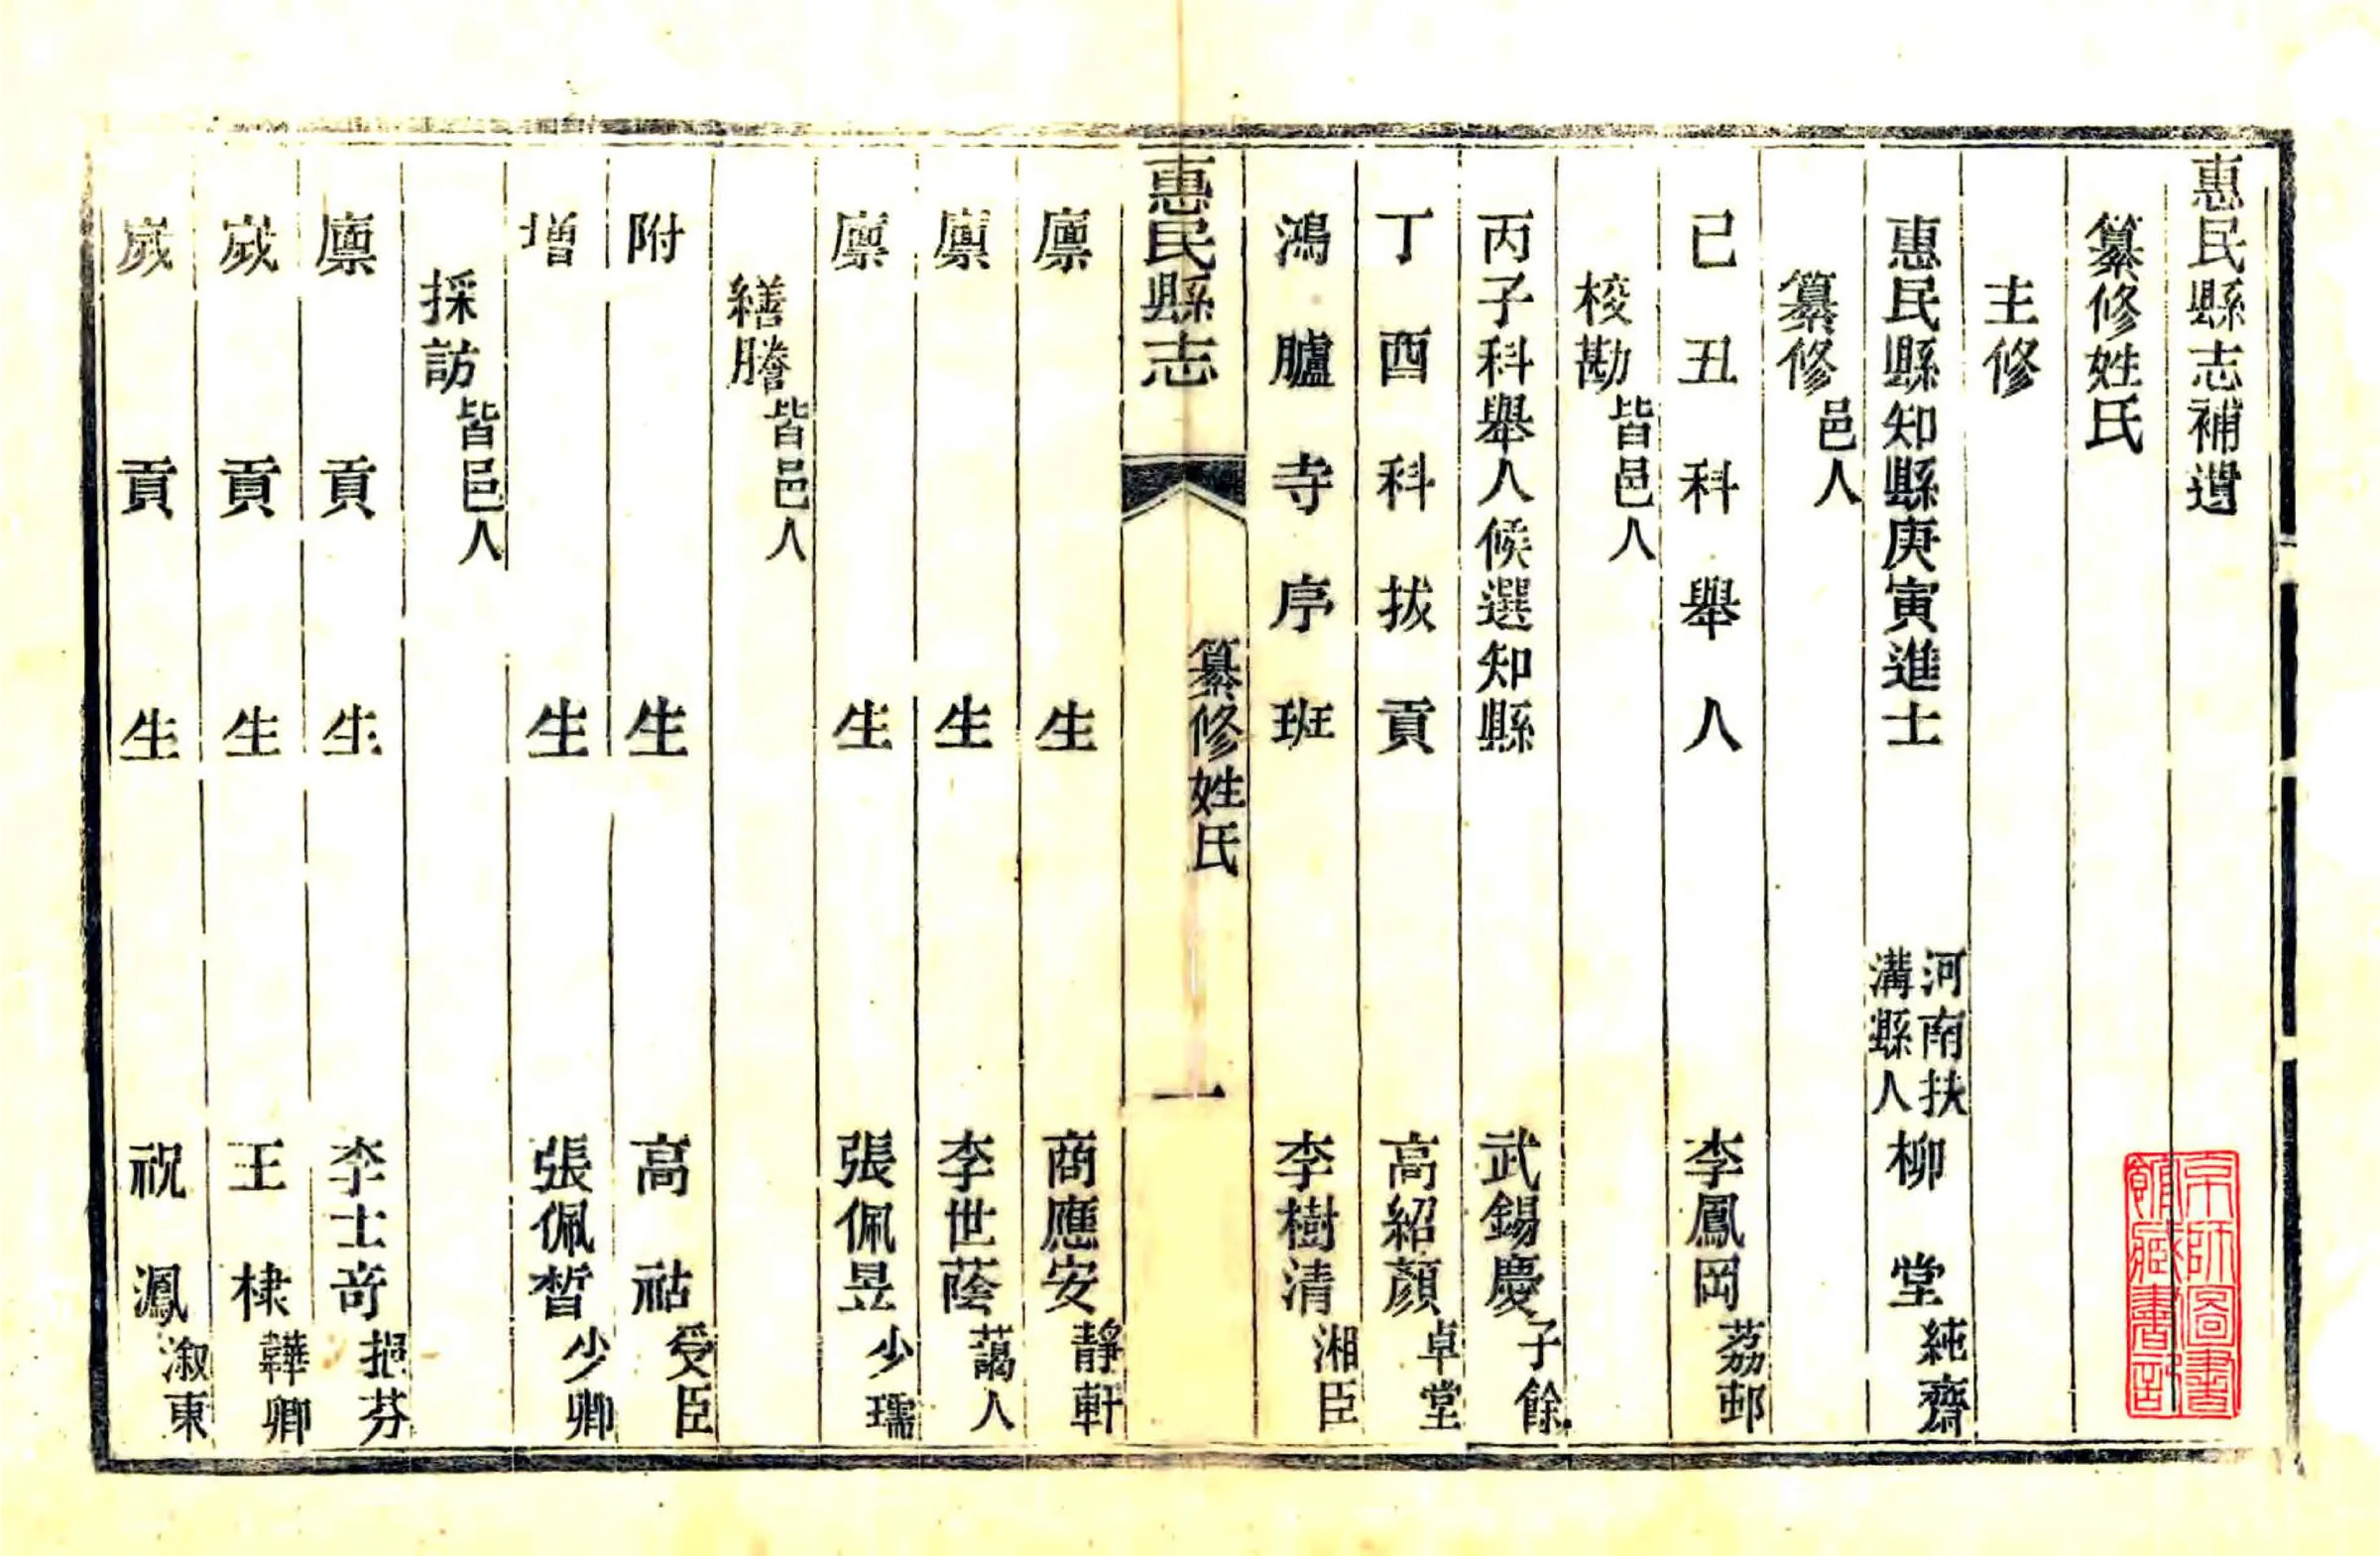 惠民縣志補遺
纂修姓氏
主修
惠民縣知縣庚寅進士 河南扶溝縣人 柳堂 純齋
纂修 邑人
己丑科舉人 李鳳岡 荔邨
校勘 皆邑人
丙子科舉人候選知縣 武錫慶 子餘
丁酉科拔貢 高紹顏 卓堂
鴻臚寺序班 李樹清 湘臣
惠民縣志 纂修姓氏 一
廪生 商應安 靜軒
廪生 李世蔭 藹人
廪生 張佩昱 少瑞
繕謄 皆邑人
附生 高祜 受臣
增生 張佩晳 少卿
採訪 皆邑人
廪貢生 李士奇 挹芬
歲貢生 王棣 韡卿
歲貢生 祝鳳 淑東
京師圖書館藏書記